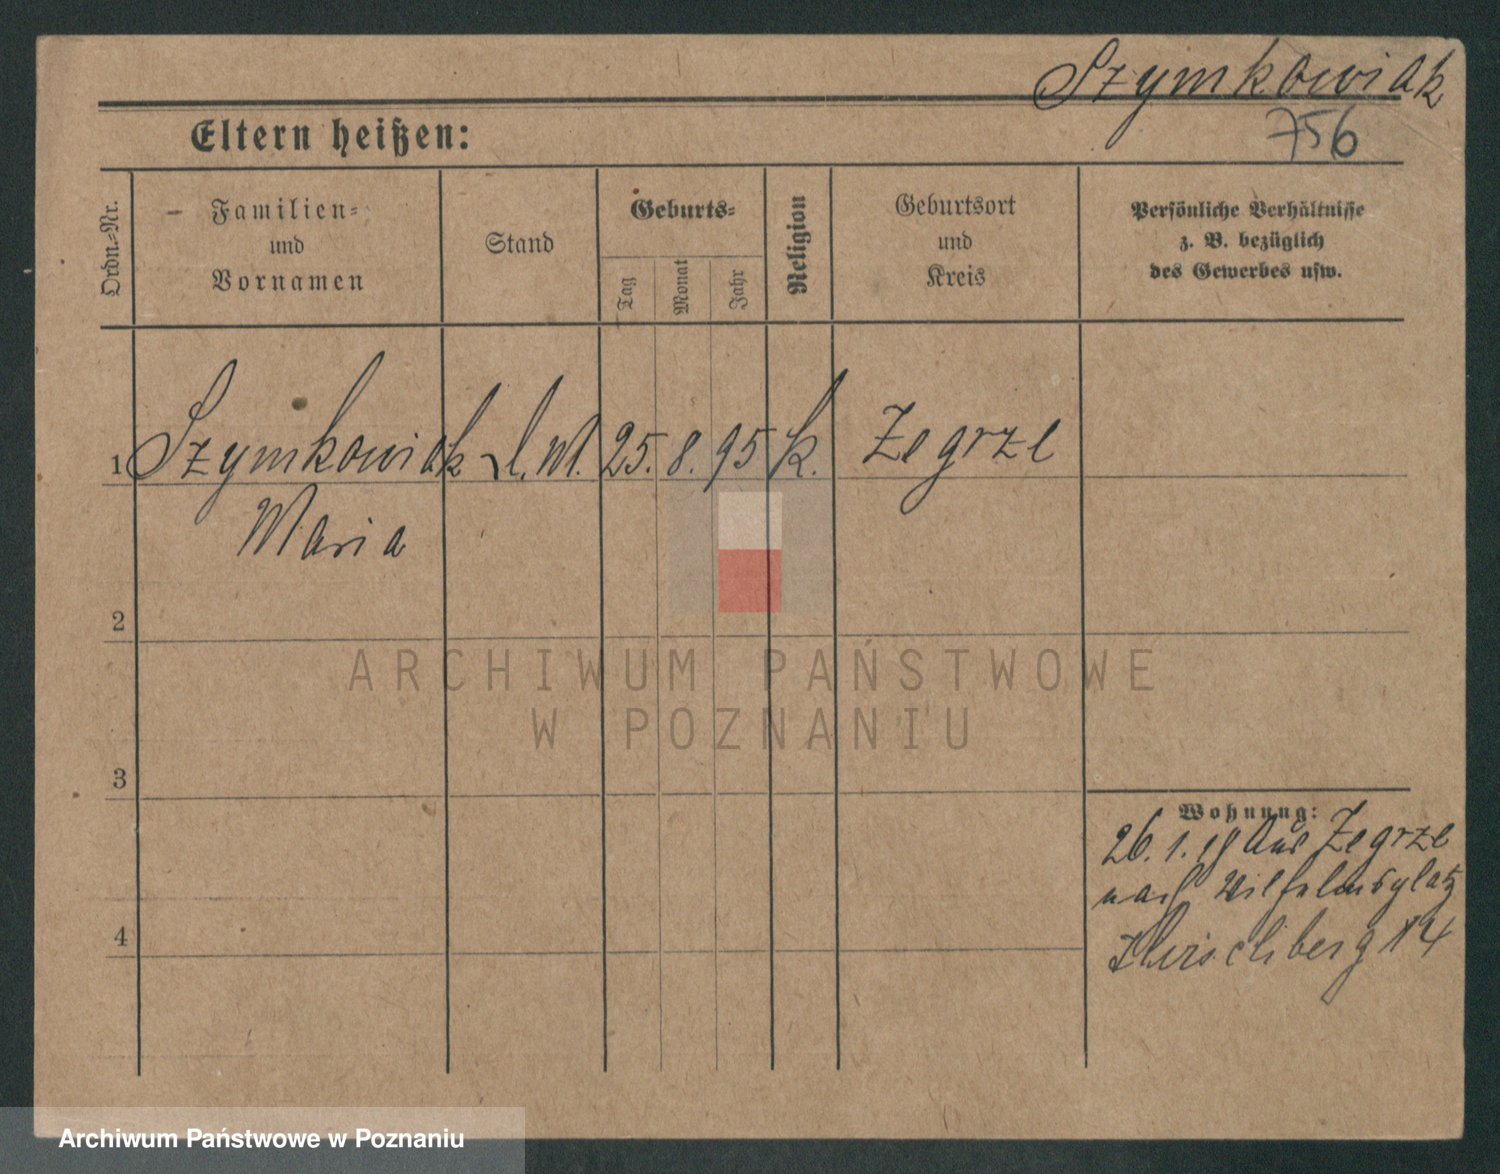 Szymkowiak
756
Eltern heißen:
Ordn.-Nr.
Familien-
und
Vornamen
Stand
Geburts-
Tag
Monat
Jahr
Religion
Geburtsort
und
Kreis
Persönliche Verhältnisse
z. B. bezüglich
des Gewerbes usw.
1 Szymkowiak l. W. 25. 8. 95 k. Zegrze
Maria
2
3
4
ARCHIWUM PAŃSTWOWE
W POZNANIU
Wohnung:
26. 1. 19 Aus Zegrze
nach Wilhelmsplatz
Hirschberg 14
Archiwum Państwowe w Poznaniu